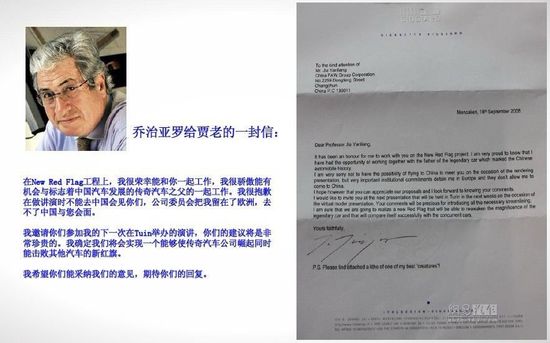 乔治亚罗给贾老的一封信:
在New Red Flag工程上,我很荣幸能和你一起工作,我很骄傲能有
机会与标志着中国汽车发展的传奇汽车之父的一起工作。我很抱歉
在做讲演时不能去中国会见你们,公司委员会把我留在了欧洲,去
不了中国与您会面。
我邀请你们参加我的下一次在Tuin举办的演讲,你们的建议将是非
常珍贵的。我确定我们将会实现一个能够使传奇汽车公司崛起同时
能击败其他汽车的新红旗。
我希望你们能采纳我们的意见,期待你们的回复。
GIORGETTO GIUGIARO
To the kind attention of
Mr. Jia Yanliang
China FAW Group Corporation
No.2259 Dongfeng Street
Changchun
China P.C 130011
Moncalieri, 18th September 2008
Dear Professor Jia Yanliang,
It has been an honour for me to work with you on the New Red Flag project. I am very proud to have
had the opportunity of working together with the father of the legendary car which marked the Chinese
automobile history.
I am very sorry not to have the possibility of flying to China to meet you on the occasion of the rendering
presentation. But very important institutional commitments detain me in Europe and they don't allow me to
come to China.
I hope however that you can appreciate our proposals and I look forward to knowing your comments.
I would like to invite you at the next presentation that will be held in Turin in the next weeks on the occasion of
the virtual model presentation. Your comments will be precious for introducing all the necessary streamlining.
I am sure that we are going to realize a new Red Flag that will be able to reawaken the magnificence of the
legendary car and that will compete itself successfully with the current cars.
Yours faithfully,
P.S. Please find attached a litho of one of my best "creatures"!
ITALDESIGN-GIUGIARO